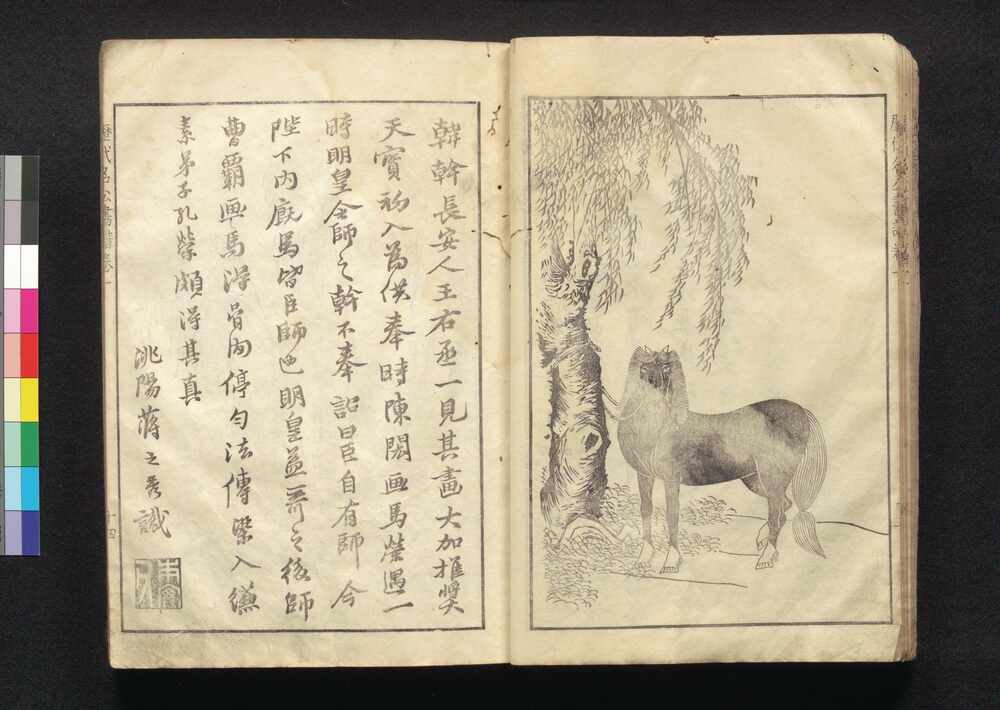 韓幹長安人王右丞一見其畫大加推奬
天寶初入為供奉時陳閎画馬榮遇一
時明皇令師之幹不奉詔曰臣自有師今
陛下内廐馬皆臣師也明皇益奇之後師
曹霸画馬得骨肉停匀法傳
入
素弟子孔榮頗得其真
洮陽蔣之 識
歷代名公畫譜卷一
十四